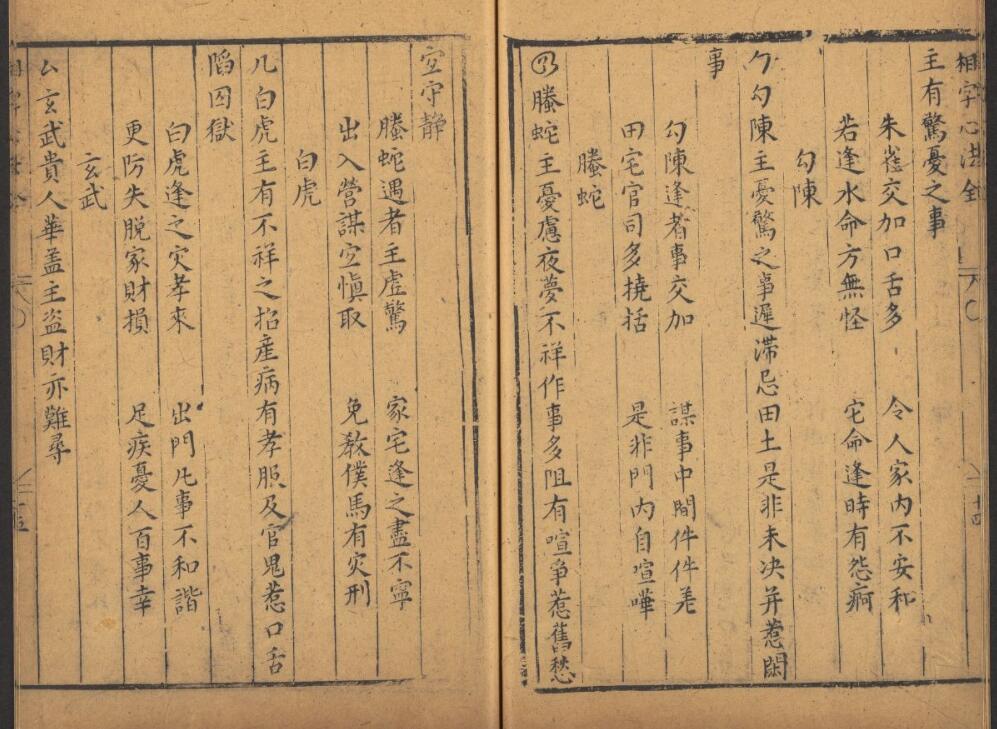 相字心法
主有驚憂之事
朱雀交加口舌多 令人家內不安和
若逢水命方無怪 宅命逢時有怨痾
勾陳
勹勾陳主憂驚之事遲滯忌田土是非未决并惹閑
事
勾陳逢者事交加 謀事中間件件差
田宅官司多撓括 是非門內自喧嘩
螣蛇
螣蛇主憂慮夜夢不祥作事多阻有喧爭惹舊愁
宜守静
螣蛇遇者主虛驚 家宅逢之盡不寧
出入營謀宜慎取 免教僕馬有灾刑
白虎
几白虎主有不祥之招産病有孝服及官鬼惹口舌
陷囚獄
白虎逢之灾孝來 出門凢事不和諧
更防失脫家財損 足疾憂人百事𠦪
玄武
厶玄武貴人華盖主盗財亦難尋